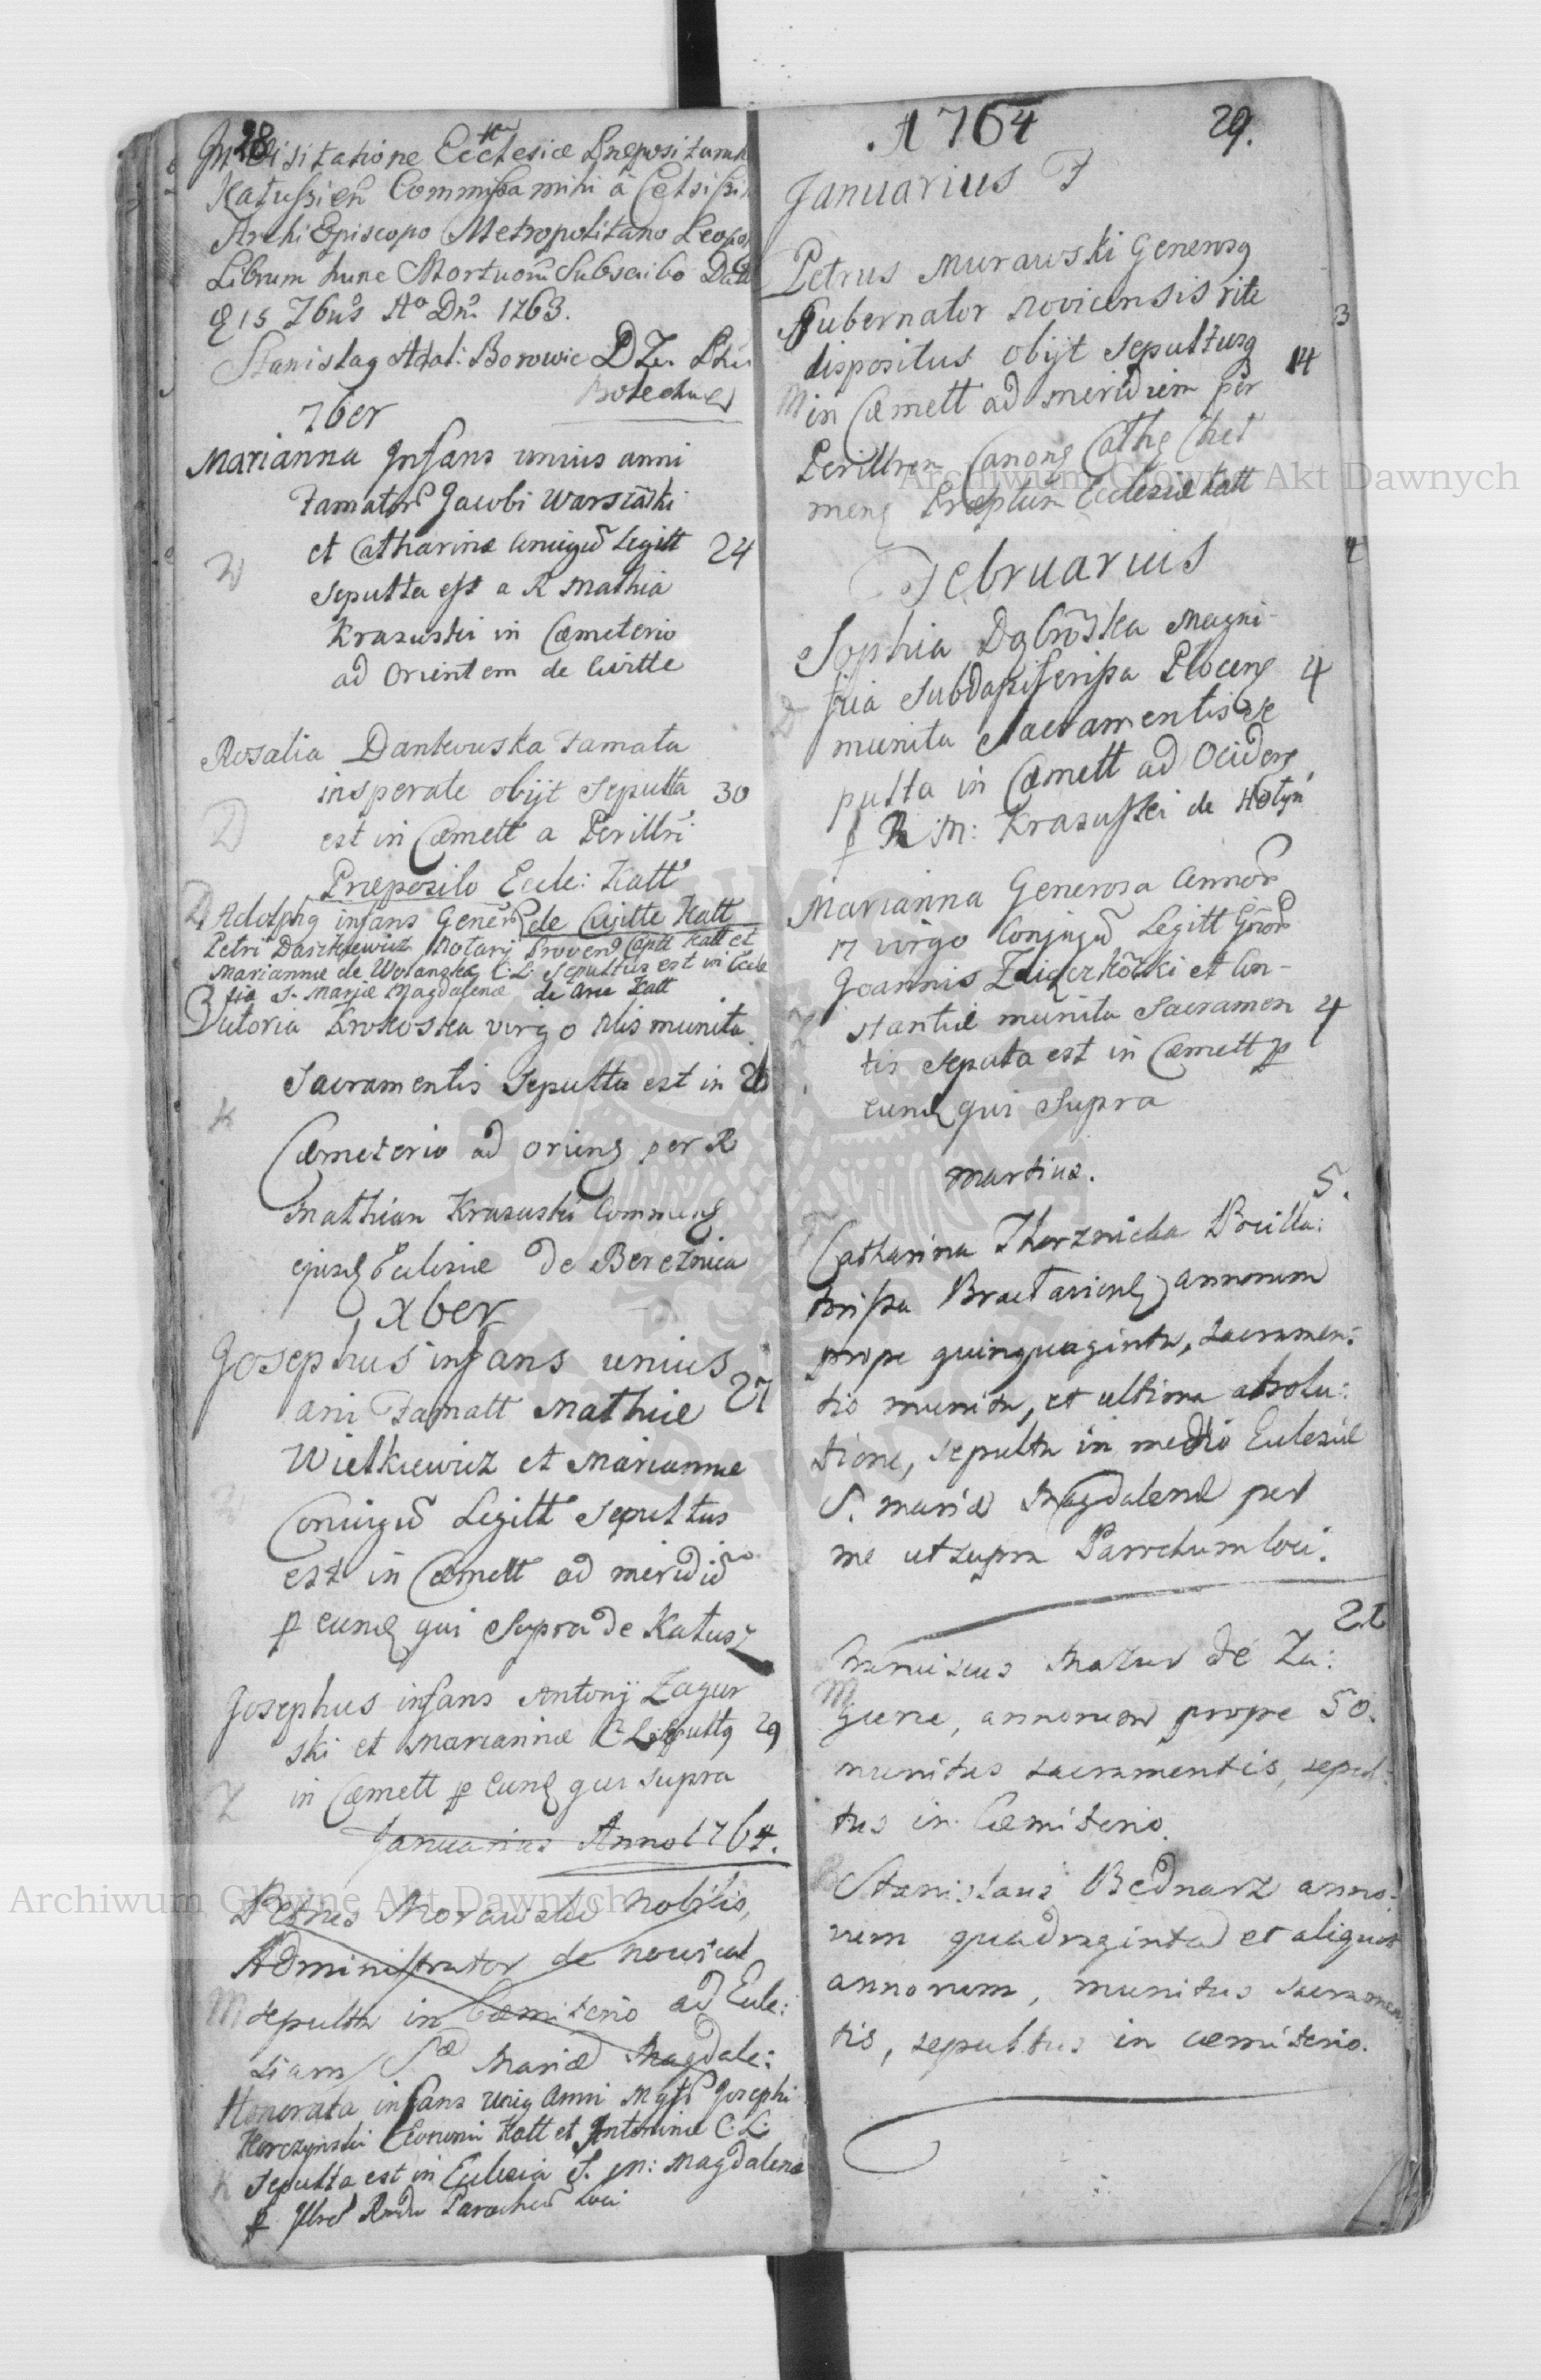 28
In Visitatione Ecclesiæ Præpositura
Katussien Commissa mihi a Celsissi
Archi Episcopo Metropolitano Leopo
Librum hunc Mortuorũ Subscribo Datt
15 7bris Aº Dni 1763.
Stanislaq Adal: Borowic
7ber
Marianna Infans unius anni
Famator Jacobi Warszaski
et Catharinæ Coniugũ Legitt 24
Sepulta est a R Mathia
Krasuski in Cæmeterio
ad Orientem de Civitte
Rosalia Dankowska Famata
insperate obijt Sepulta 30
D est in Cæmett a Perillri
Præposito Eccle: Katt
D Adolphq infans Gener de Civitte Katt
Petri Daszkiewicz Notarij Proven Capit Katt et
Mariannæ de Wolanska C.L. Sepultus est in Eccle
sia S. Mariæ Magdalenæ de Arce Katt
Victoria Krokoska virgo munita
Sacramentis Sepulta est in
K
Cæmeterio ad Orienq per R
Mathian Krasuski Commenq
ejusq Ecclesiæ de Bereznica
Xber
Josephus infans unius
ani Famatt Mathiæ 27
Wielkiewicz et Mariannæ
Coniugũ Legitt Sepultus
est in Cæmett ad meridiẽ
p eunq qui Supra de Katusz
Josephus infans Antonij Zagur
ski et Mariannæ C L Sepultq 29
Z in Cæmett p eunq qui supra
Januarius Anno 1764.
Petrus Morawski Nobilis,
Administrator de
M sepultu in Cæmiterio ad Eccle:
siam Sæ Mariæ Magdale:
Honorata infans Uniq Anni Josephi
Horczynski Economi Katt et Antoninæ C.L.
K Sepulta est in Eclesia S. M: Magdalena
p Parochũ Loci
A 1764 29.
Januarius
Petrus Murawski Generosq
Gubernator Novicensis rite 3
dispositus obijt Sepultusq 14
M in Cæmett ad meridiem per
Perillrem Canonq Cathq Chel
menq Præptum Ecclesiæ Katt
Februarius
Sophia Dqbrõska Magni-
fica Subdapiferissa Plocenq 4
D munita Sacramentis Se
pulta in Cæmett ad Ocidenq
p R M: Krasuski de Hotyn
Marianna Generosa Annor
17 virgo Conjugũ Legitt
Joannis et Con-
stantiæ munita Sacramen 4
tis Sepulta est in Cæmett p
eunq qui Supra
Martius.
5.
Catharina Thorznicka Pocilla:
torissa Braclaviens annorum
prope quinquaginta, sacramen:
tis munita, et ultima absolu:
tione, sepulta in medio Eclesiæ
S. mariæ Magdalenæ per
me ut supra Parochum loci.
Franciscus Mazur de Za:
M
annorum prope 50.
munitus sacramentis, sepul:
tus in Cæmiterio.
B Stanislaus Bednarz anno:
rum quadraginta et aliquot
annorum, munitus sacramen
tis, sepultus in cæmiterio.
Archiwum Główne Akt Dawnych
Archiwum Główne Akt Dawnych